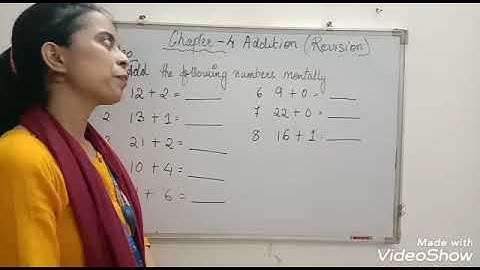 Chapter-4 Addition (Revision)
Add the following numbers mentally
12 + 2 = ____
2 13 + 1 = ____
21 + 2 = ____
10 + 4 = ____
+ 6 = ____
6 9 + 0 = ____
7 22 + 0 = ____
8 16 + 1 = ____
Made with
VideoShow